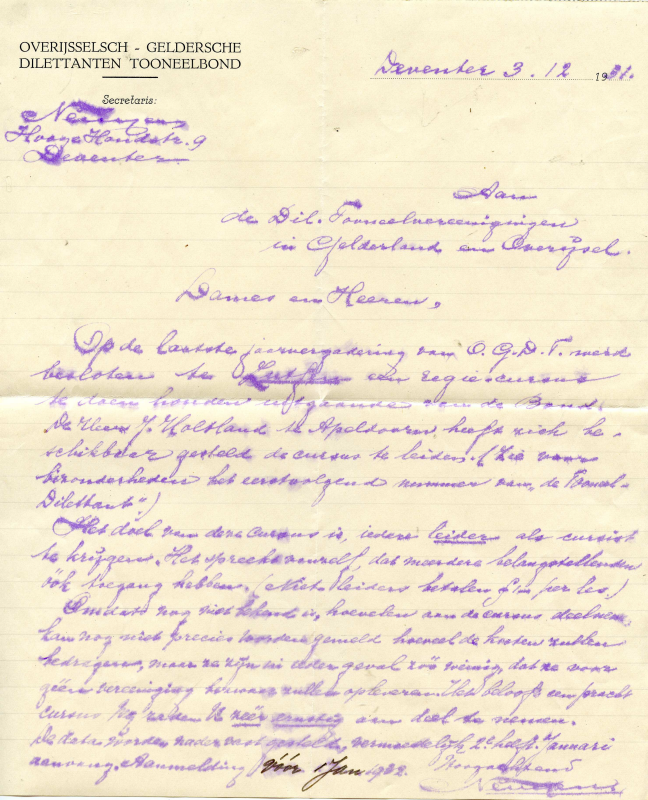 OVERIJSSELSCH - GELDERSCHE
DILETTANTEN TOONEELBOND
Deventer 3. 12 1931.
Secretaris:
Hooge Hondstr. 9
Deventer
Aan
de Dil. Tooneelvereenigingen
in Gelderland en Overijsel.
Dames en Heeren,
Op de laatste jaarvergadering van O.G.D.T. werd
besloten te Zutfen een regie-cursus
te doen houden uitgaande van de Bond.
De Heer J. Holtland te Apeldoorn heeft zich be-
schikbaar gesteld de cursus te leiden. (Zie voor
bizonderheden het eerstvolgend nummer van „de Tooneel-
Dilettant".)
Het doel van deze cursus is, iedere leider als cursist
te krijgen. Het spreekt vanzelf, dat meerdere belangstellenden
óók toegang hebben. (Niet-leiders betalen per les.)
Omdat nog niet bekend is, hoevelen aan de cursus deelnemen,
kan nog niet precies worden gemeld hoeveel de kosten zullen
bedragen, maar ze zijn in ieder geval zóó weinig, dat ze voor
géén vereeniging bezwaar zullen opleveren. Het belooft een pracht
cursus Wij raden U zéér ernstig aan deel te nemen.
De data worden nader vastgesteld, vermoedelijk 2e helft Januari
aanvang. Aanmelding vóór 1 Jan 1932.